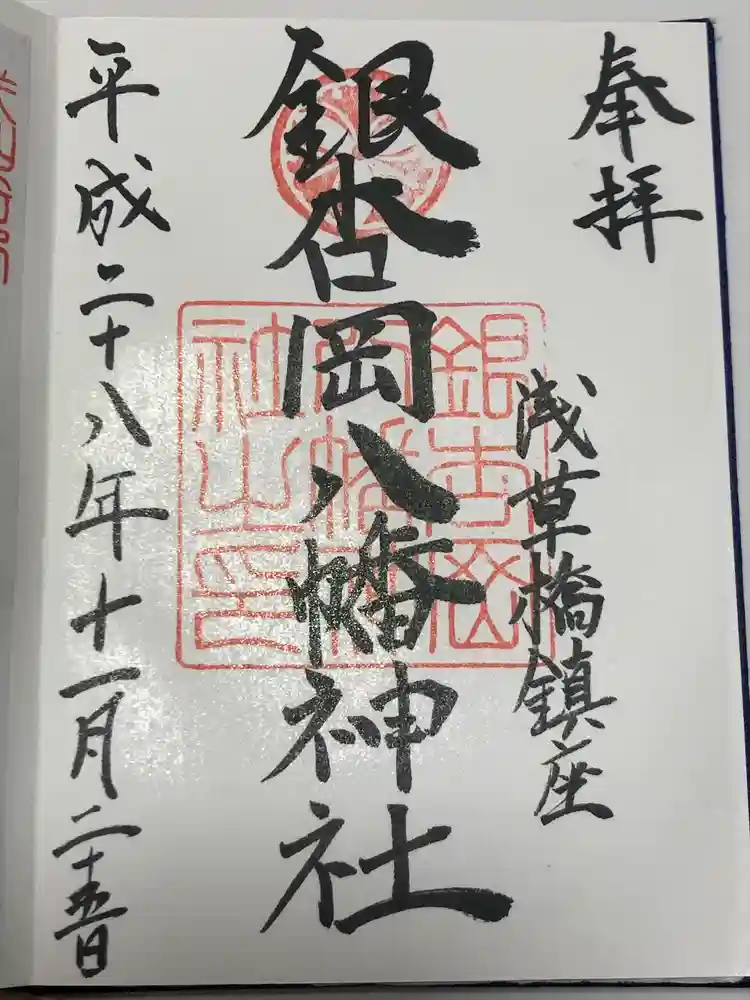 奉拝
浅草橋鎮座
銀杏岡八幡神社
銀杏岡
八幡神
社之印
平成二十八年十一月二十五日